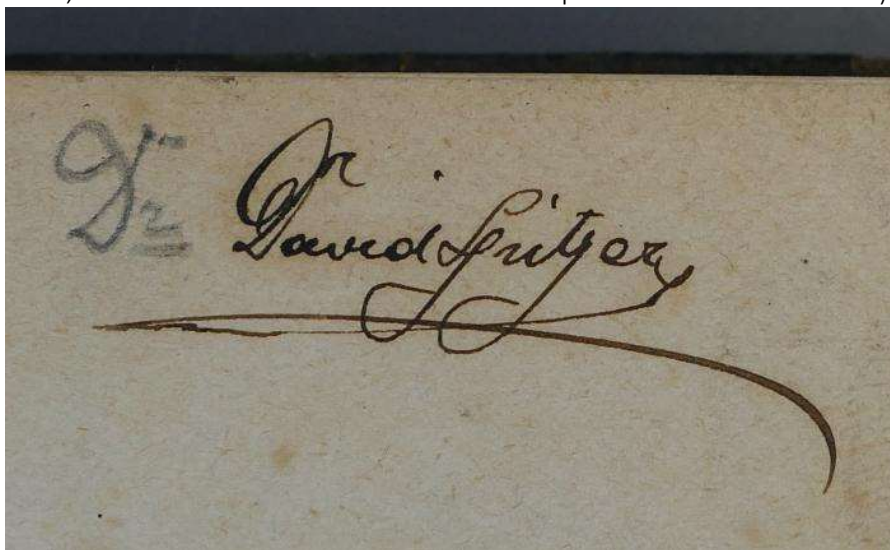 Dr David Spitzer